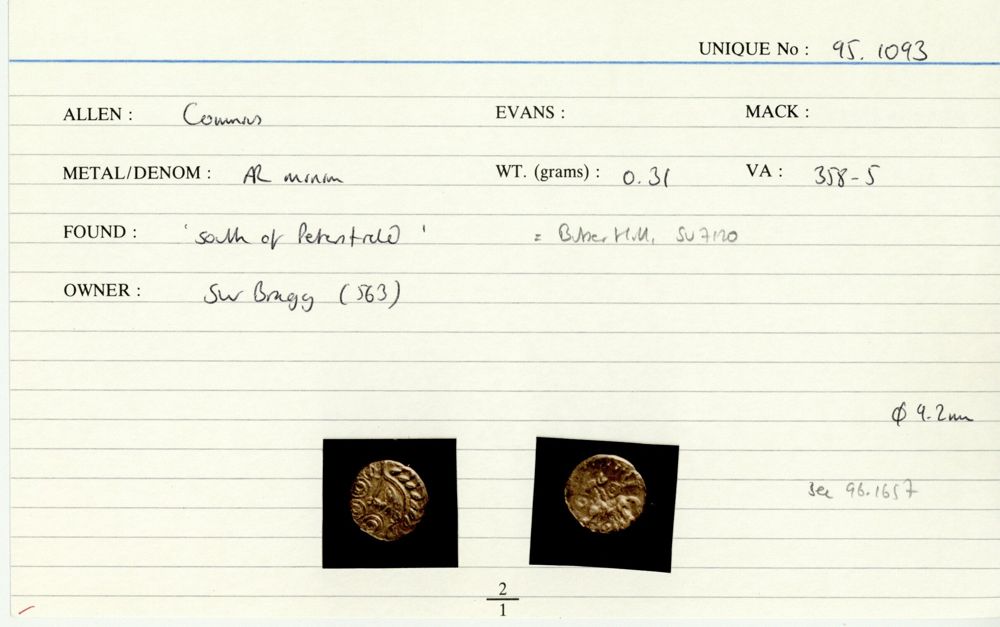 UNIQUE No : 95. 1093
ALLEN : Commios EVANS : MACK :
METAL/DENOM : AR minim WT. (grams) : 0.31 VA : 358-5
FOUND : 'south of Petersfield' = Butser Hill, SU7120
OWNER : SW Bragg (563)
φ 9.2mm
see 96.1657
2
1